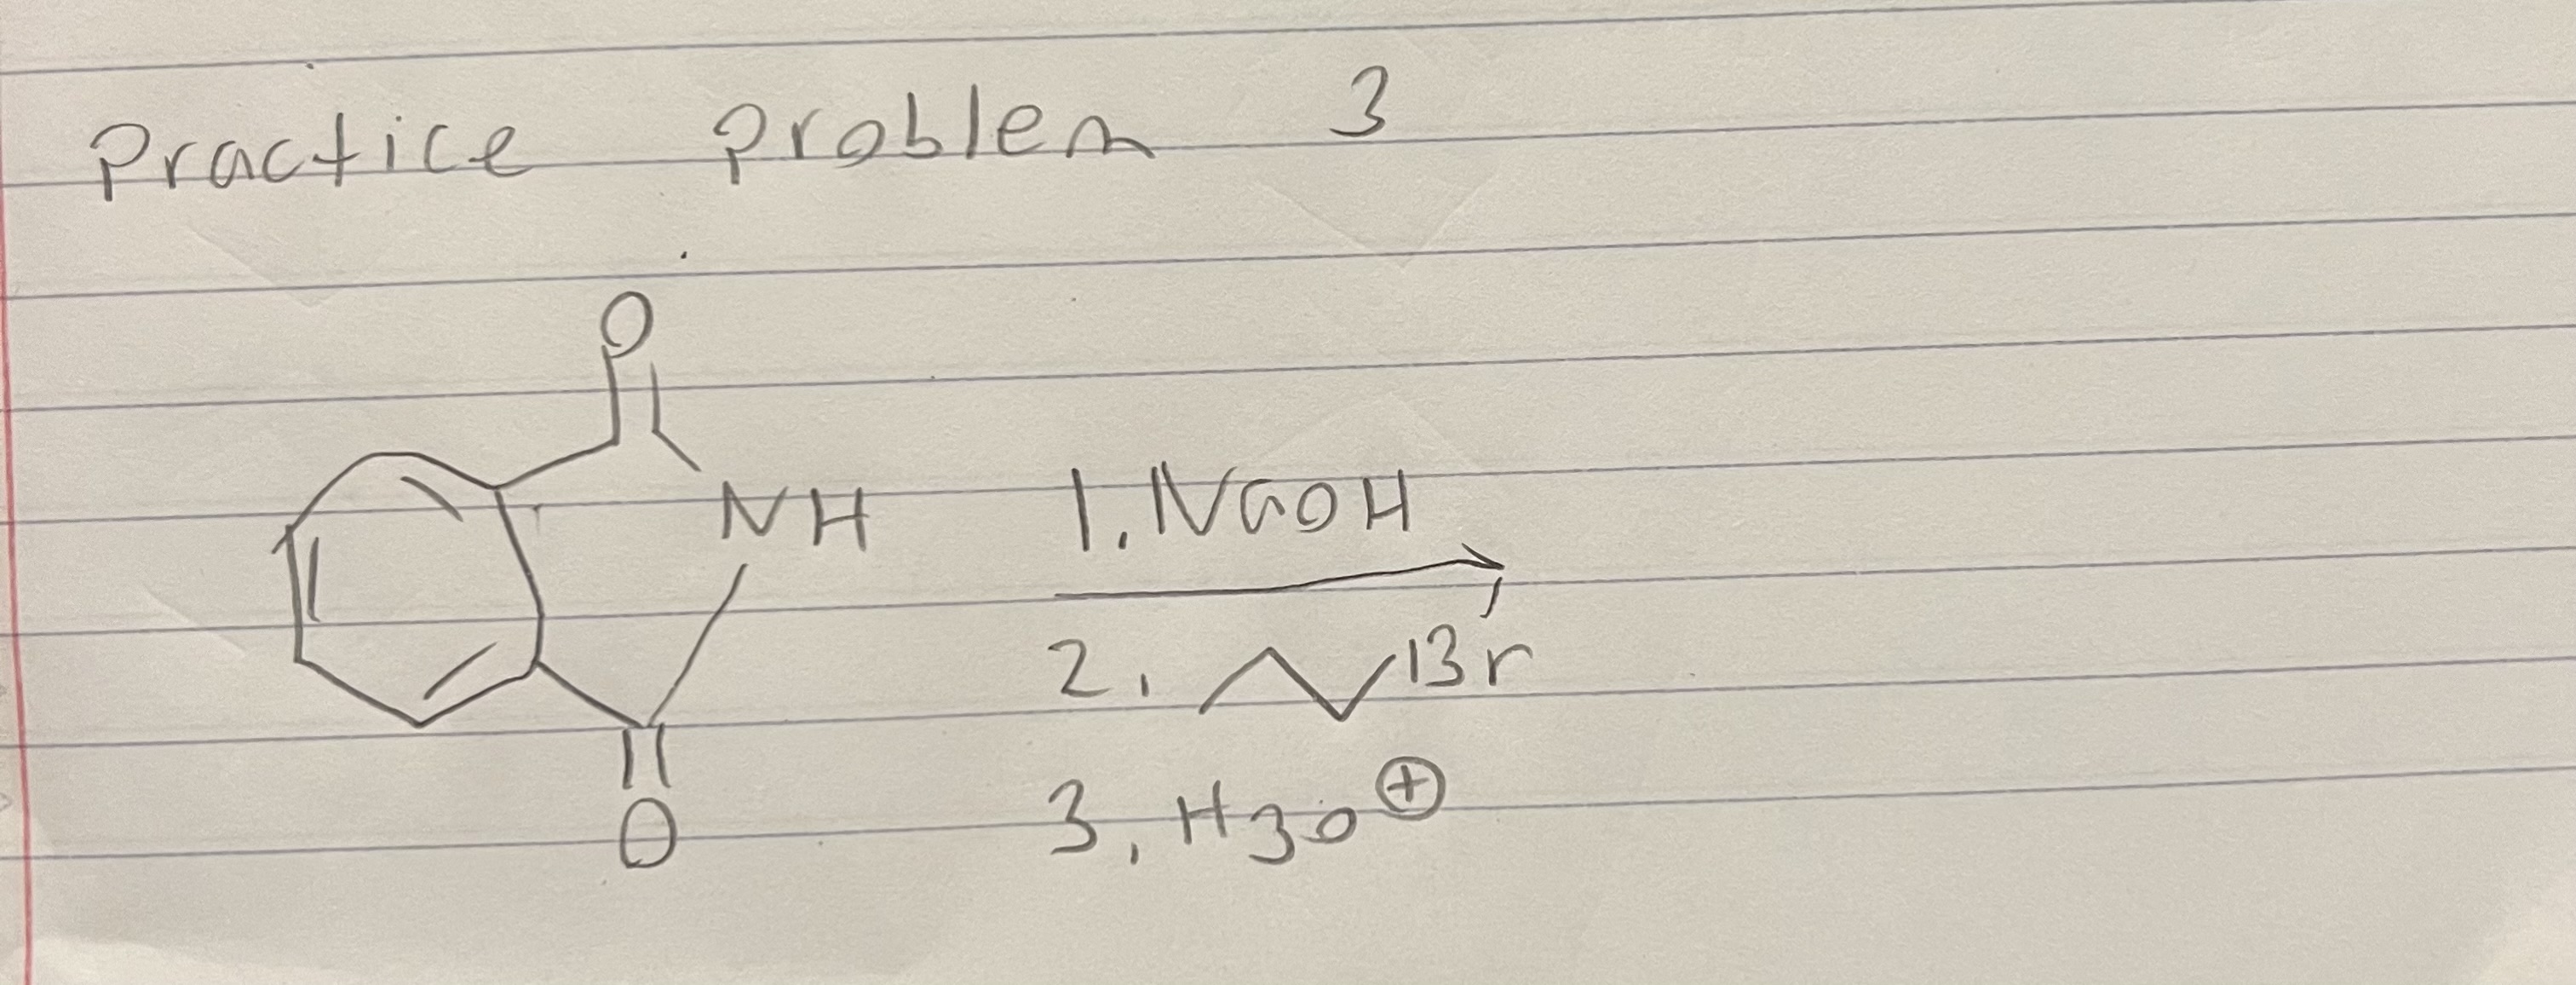 Practice Problem 3
O
NH
1. NaOH
2. Br
3. H3O⊕
O